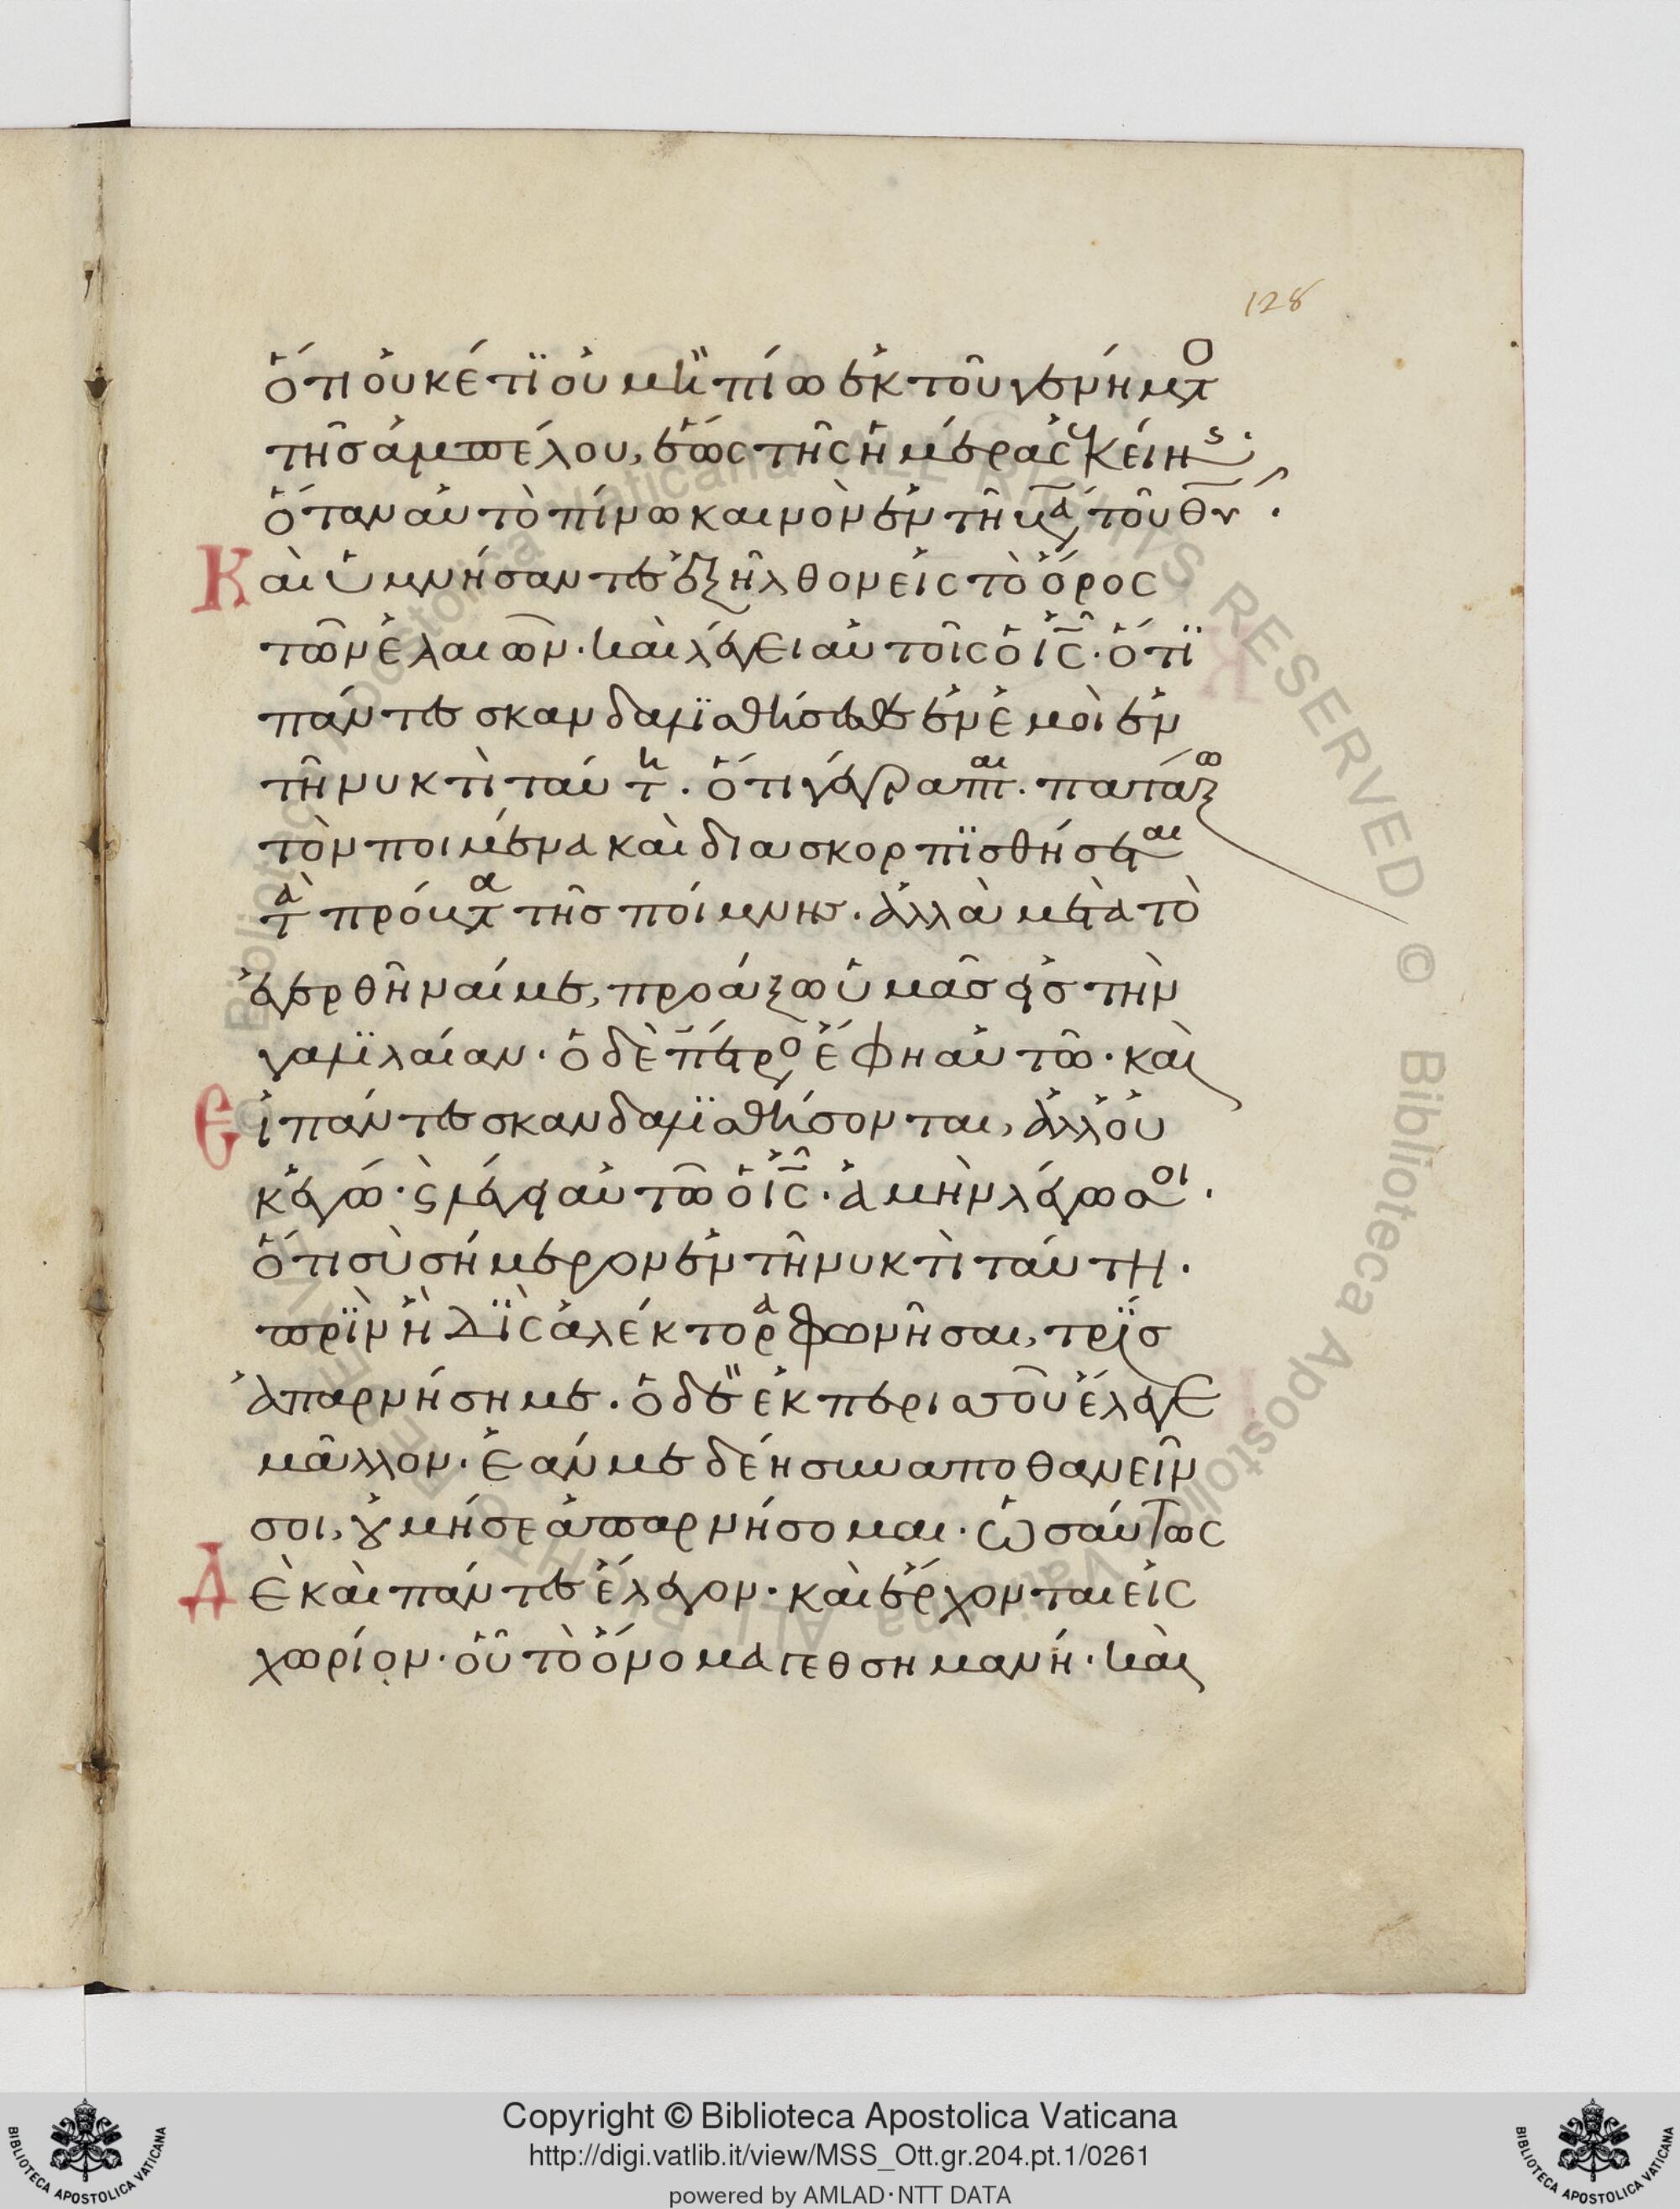 128
ὅτι οὐκέτϊ οὐ μὴ πίω ἐκ τοῦ γενήματο
τῆς ἀμπέλου, ἕως τῆς ἡμέρας ἐκείνης·
ὅταν αὐτὸ πίνω καινὸν ἐν τῆ βα τοῦ θυ·
Και ὑμνήσαντες ἐξῆλθον εἰς τὸ ὄρος
τῶν ἐλαιῶν· καὶ λέγει αὐτοῖς ὁ ις· ὅτϊ
πάντες σκανδαλϊσθήσεσθε ἐν ἐμοὶ ἐν
τῆ νυκτὶ ταύτη· ὅτι γέγραπται· πατάξω
τὸν ποιμένα καὶ διασκορπϊσθήσεται
τὰ πρόβατα τῆς ποίμνης· ἀλλὰ μετὰ τὸ
ἐγερθῆναί με, προάξω ὑμᾶς εἰς τὴν
γαλϊλαίαν· ὁ δὲ πέτρο ἔφη αὐτῶ· καὶ
Εἰ πάντες σκανδαλϊσθήσονται, ἀλλ' οὐ
κ ἐγώ· ϛ λέγει αὐτῶ ὁ ις· ἀμὴν λέγω σοι·
ὅτι σὺ σήμερον ἐν τῆ νυκτὶ ταύτη·
πρϊν ἢ δϊς ἀλέκτορα φωνῆσαι, τρϊς
ἀπαρνήση με· ὁ δὲ ἐκ περισσοῦ ἔλεγε
μᾶλλον· ἐάν με δέη συναποθανεῖν
σοι, ȣ μή σε ἀπαρνήσομαι· ὡσαύτως
Δε καὶ πάντες ἔλεγον· καὶ ἔρχονται εἰς
χωρίον· οὗ τὸ ὄνομα γεθσημανή· καὶ
Copyright © Biblioteca Apostolica Vaticana
http://digi.vatlib.it/view/MSS_Ott.gr.204.pt.1/0261
powered by AMLAD·NTT DATA
BIBLIOTECA APOSTOLICA VATICANA
BIBLIOTECA APOSTOLICA VATICANA